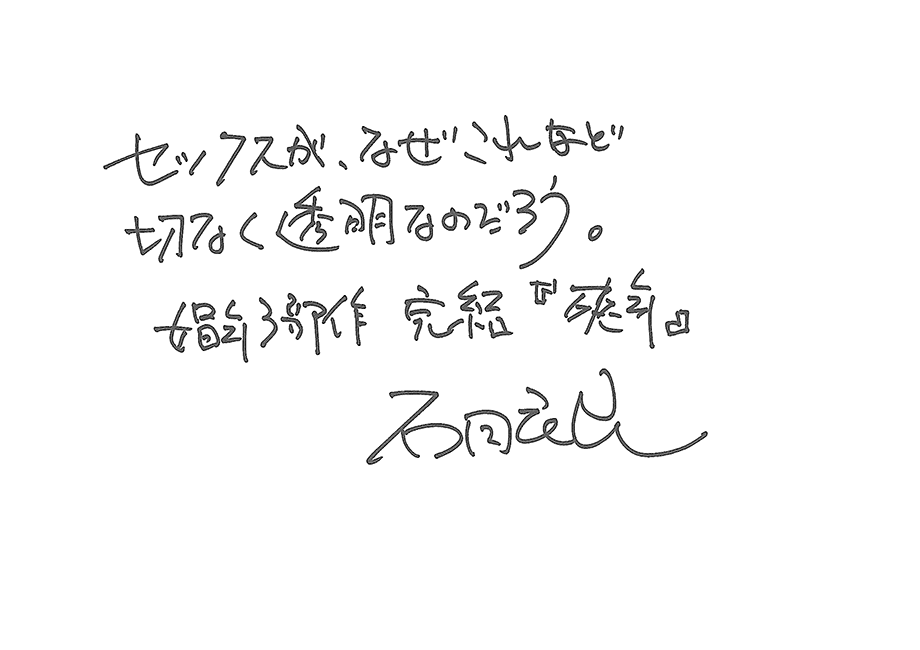 セックスが、なぜこれほど
切なく透明なのだろう。
娼年3部作 完結『爽年』
石田衣良